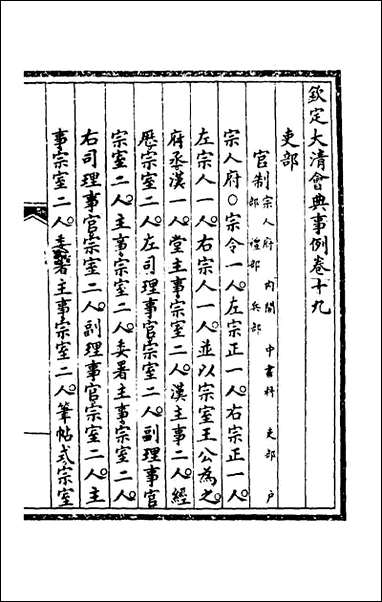 欽定大清會典事例卷十九
吏部
官制宗人府 內閣 中書科 吏部 戶
部 禮部 兵部
宗人府○宗令一人。左宗正一人。右宗正一人。
左宗人一人。右宗人一人。並以宗室王公為之。
府丞漢一人。堂主事宗室二人。漢主事二人。經
歷宗室二人。左司理事官宗室二人。副理事官
宗室二人。主事宗室二人。委署主事宗室二人。
右司理事官宗室二人。副理事官宗室二人。主
事宗室二人。委署主事宗室二人。筆帖式宗室